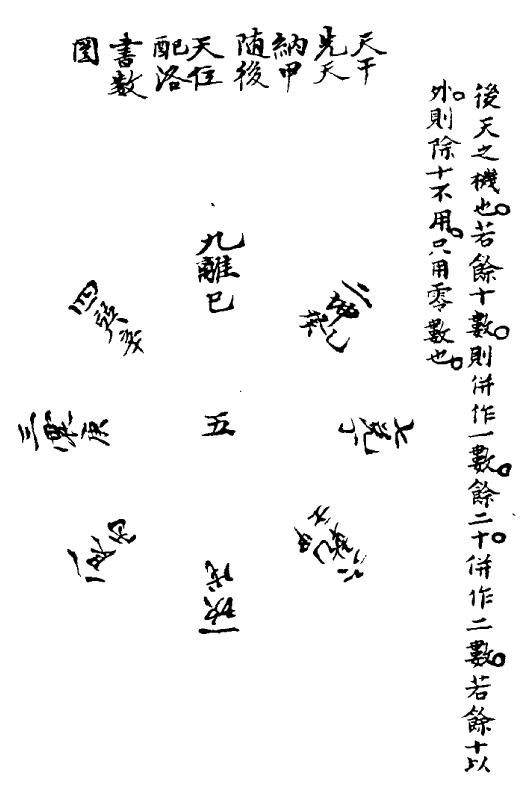 後天之機也。若餘十數。則併作一數。餘二十。併作二數。若餘十以
外。則除十不用。只用零數也。
天干
先天
納甲
随後
天位
配洛
書數
圖
九離巳
二坤乙癸
七兌丁
六乾壬甲
一坎戊
八艮丙
三震庚
四巽辛
五